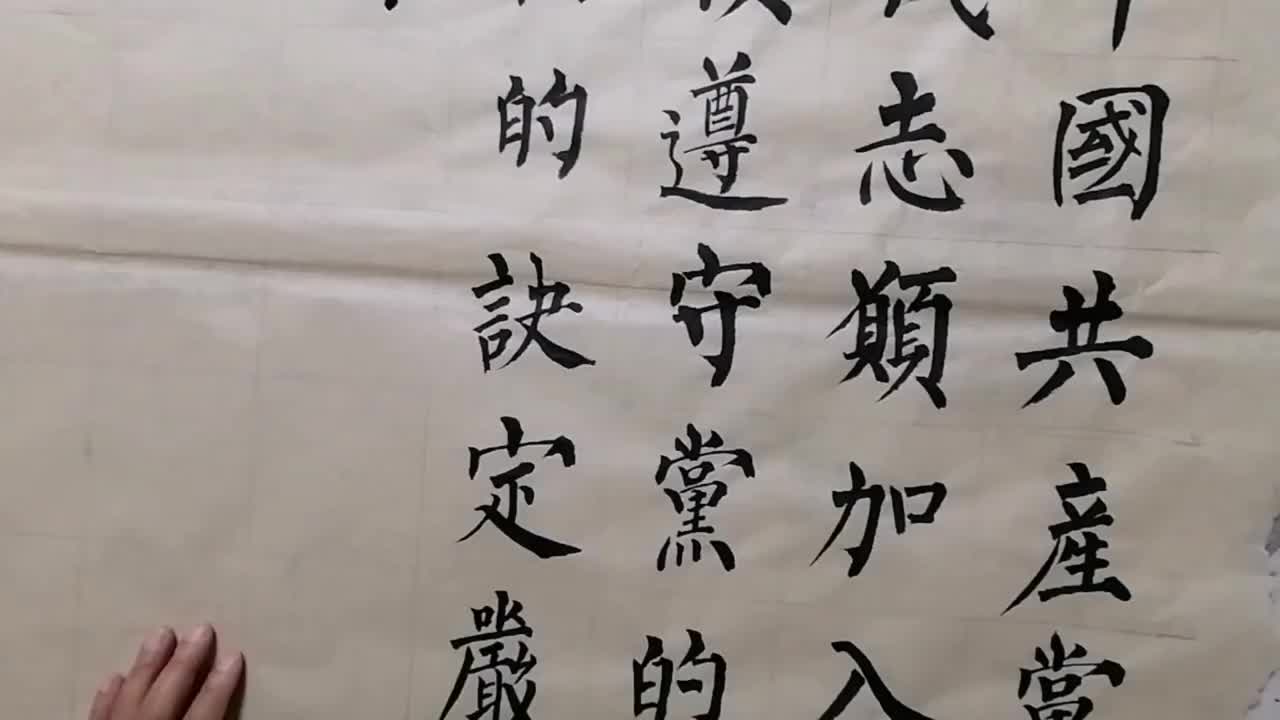 中國共產黨
我志願加入
遵守黨的
的訣定嚴